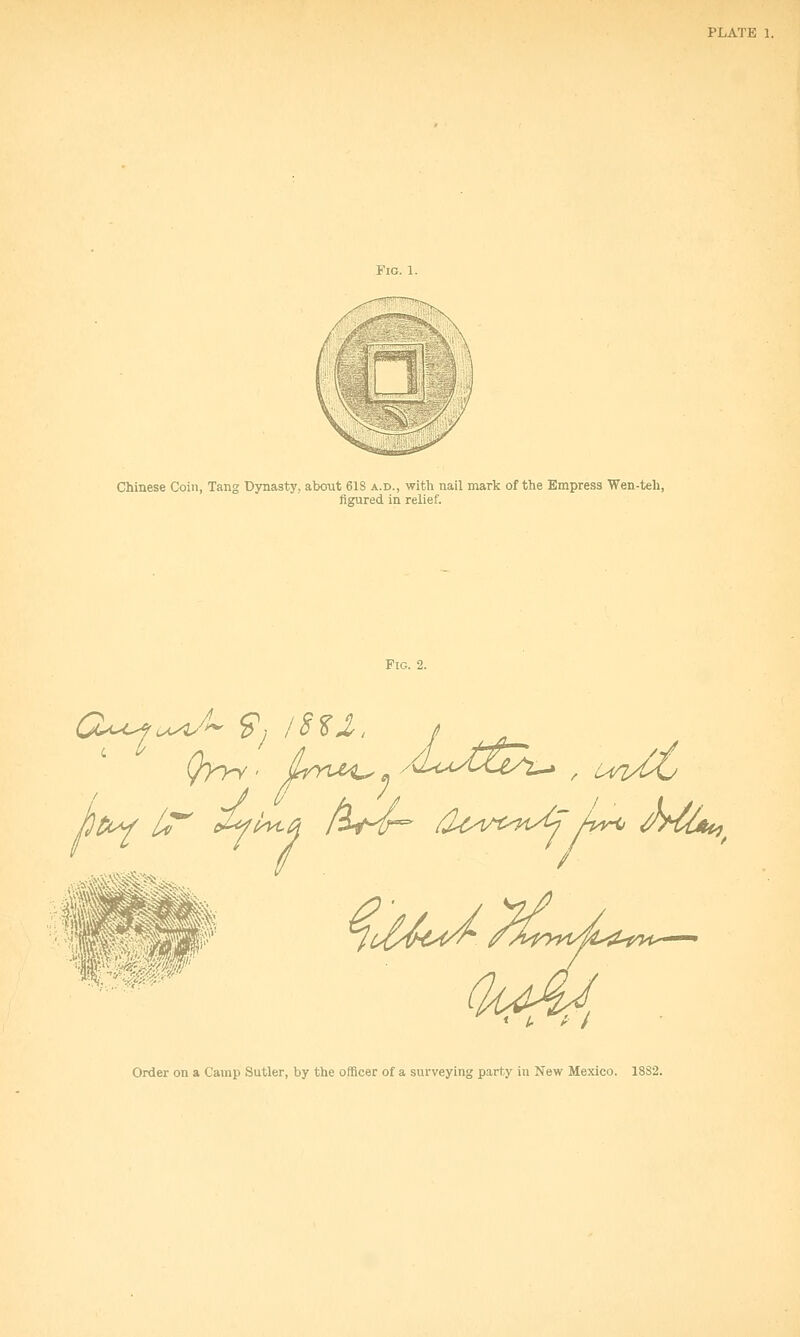 PLATE 1.
FIG. 1.
Chinese Coin, Tang Dynasty, about 618 A.D., with nail mark of the Empress Wen-teh,
figured in relief.
FIG. 2.
August 8, 1882.
Mr. Jones, Sutler, will
pay to Lying Bob seventy five dollars,
75.00
100
Gilbert Thompson
U.S.G.S.
Order on a Camp Sutler, by the officer of a surveying party in New Mexico. 1882.